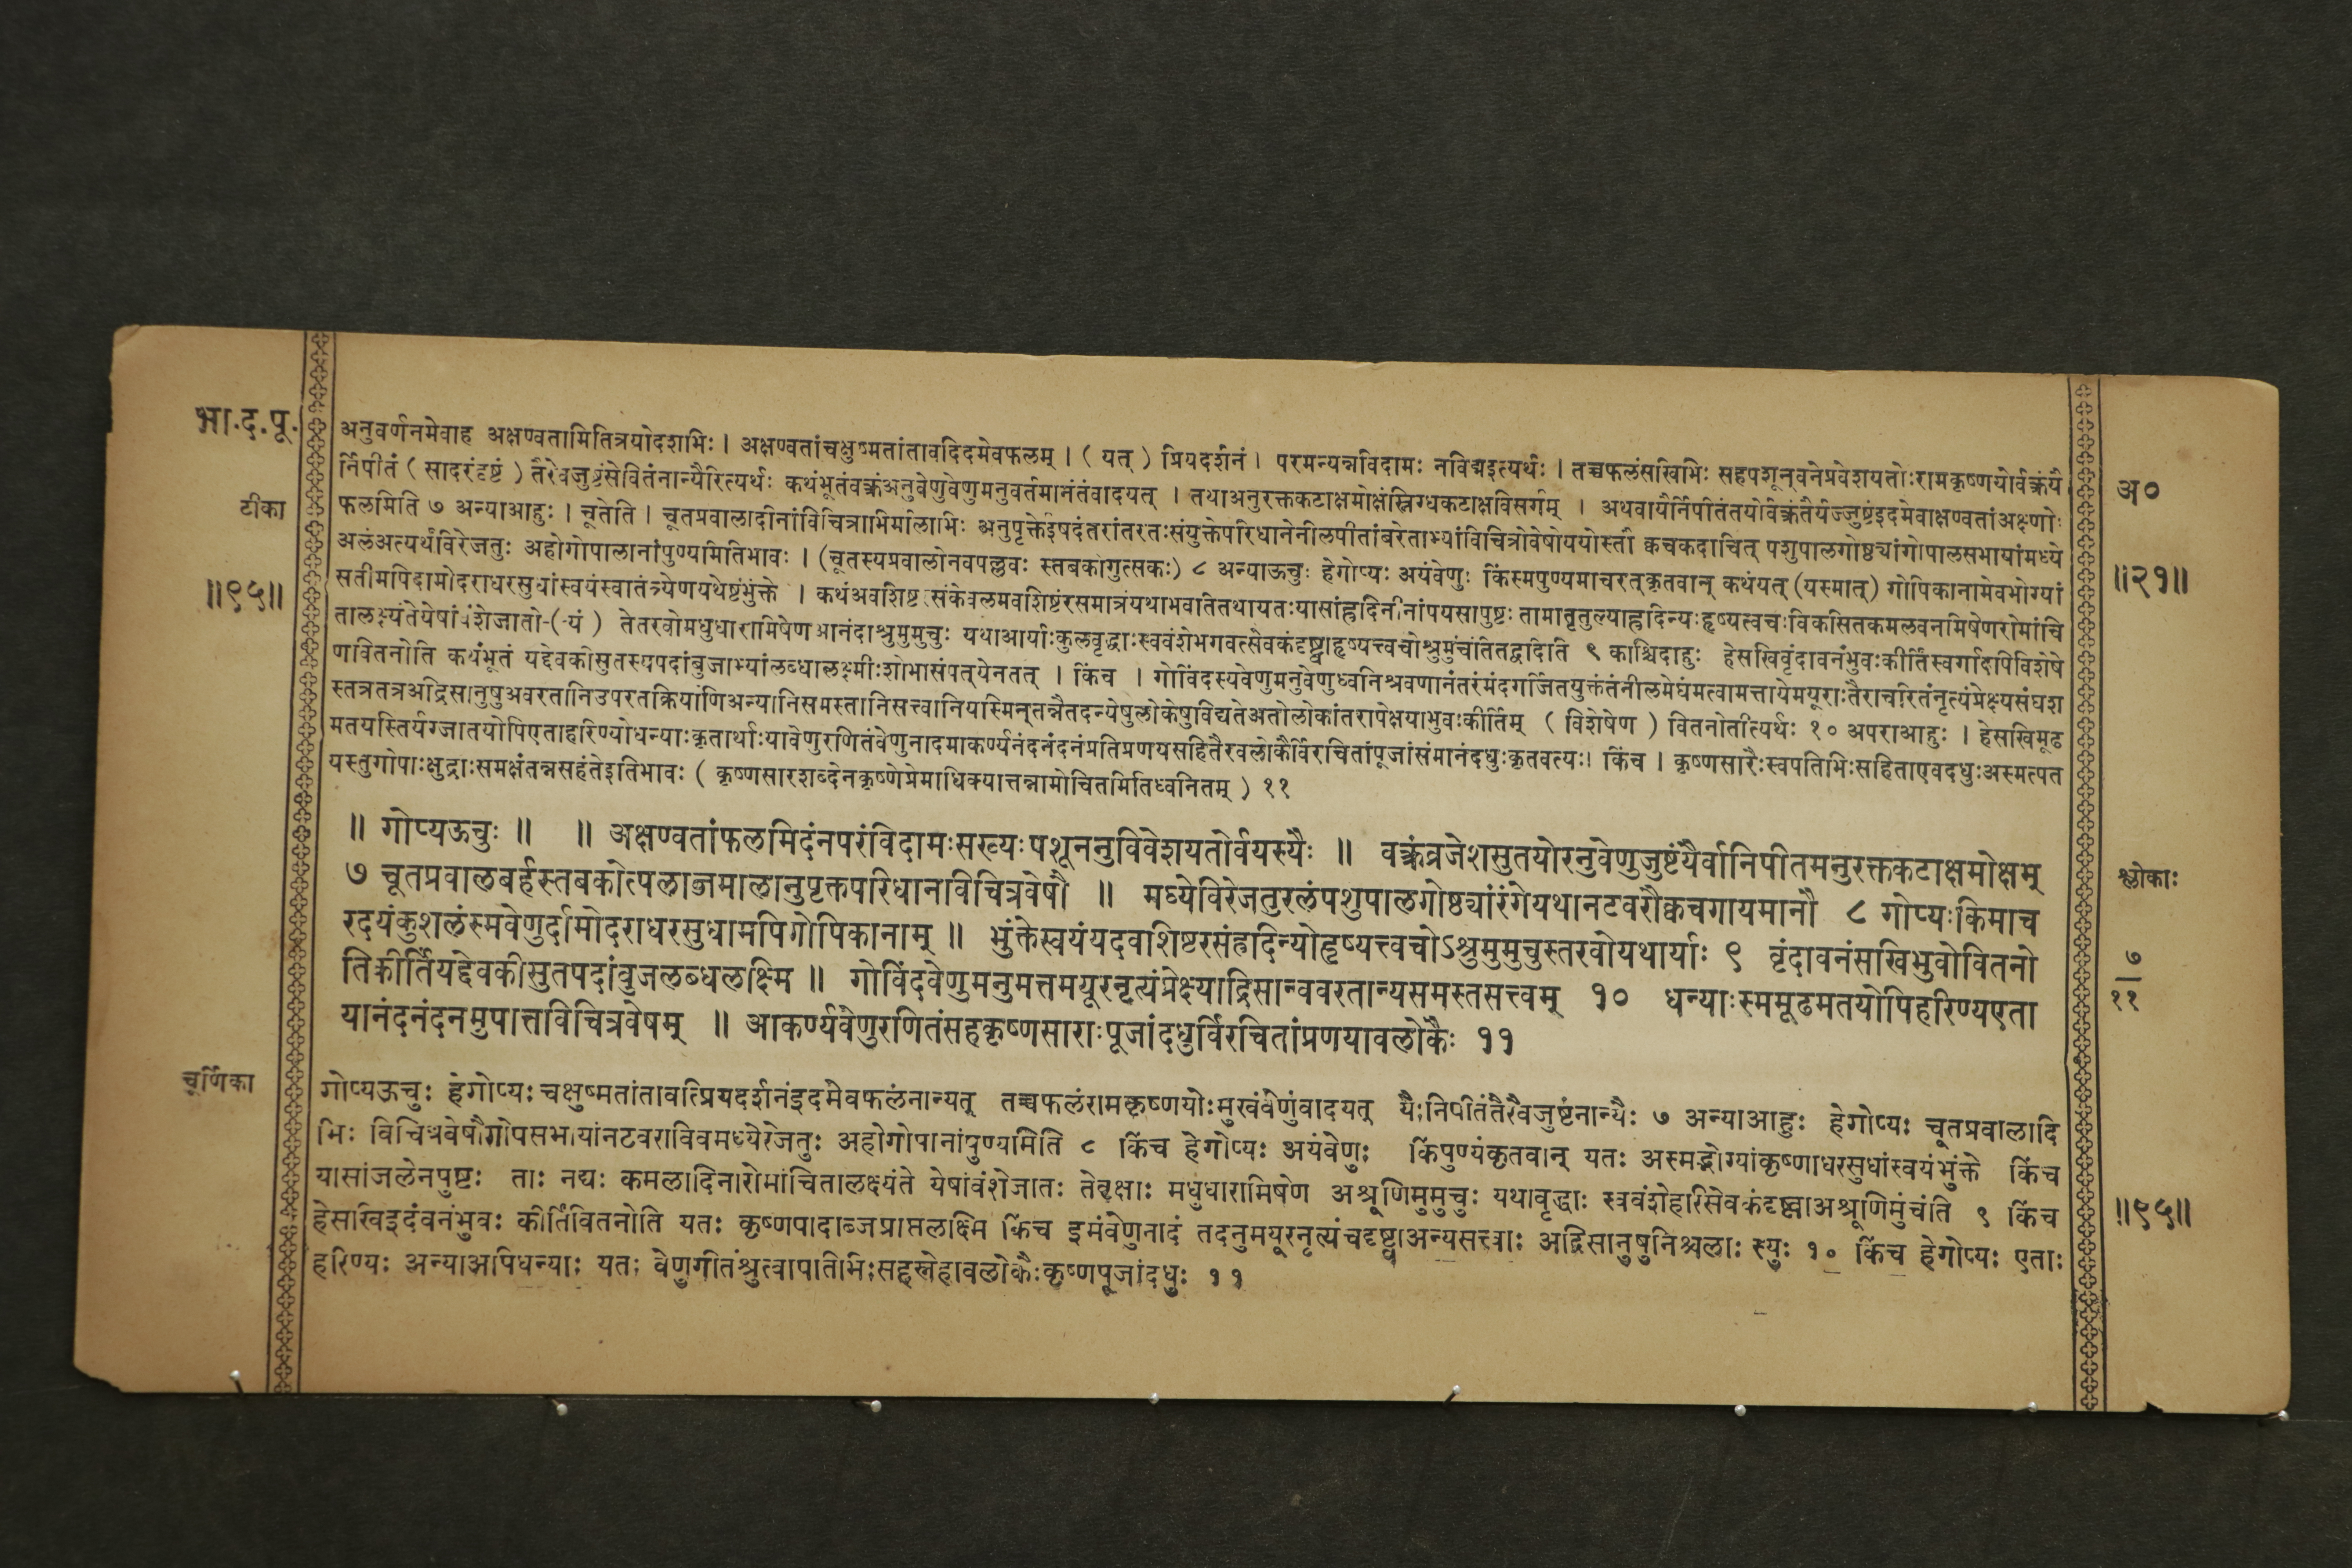 भा.द.पू.
टीका
॥९५॥
अनुवर्णनमेवाह अक्षण्वतामितित्रयोदशभिः । अक्षण्वतांचक्षुष्मतांतावदिदमेवफलम् । ( यत् ) प्रियदर्शनं । परमन्यन्नविदामः नविद्मइत्यर्थः । तच्चफलंसखिभिः सहपशून्वनेप्रवेशयतोःरामकृष्णयोर्वक्त्रंयै
र्निपीतं ( सादरंदृष्टं ) तैरेवजुष्टंसेवितंनान्यैरित्यर्थः कथंभूतंवक्त्रंअनुवेणुवेणुमनुवर्तमानंतंवादयत् । तथाअनुरक्तकटाक्षमोक्षंस्निग्धकटाक्षविसर्गम् । अथवायैर्निपीतंतयोर्वक्त्रंतैर्यज्जुष्टंइदमेवाक्षण्वतांअक्ष्णोः
फलमिति ७ अन्याआहुः । चूतेति । चूतप्रवालादीनांविचित्राभिर्मालाभिः अनुपृक्तेईषदंतरांतरतःसंयुक्तेपरिधानेनीलपीतांबरेताभ्यांविचित्रोवेषोययोस्तौ क्वचकदाचित् पशुपालगोष्ठ्यांगोपालसभायांमध्ये
अलंअत्यर्थंविरेजतुः अहोगोपालानांपुण्यमितिभावः । (चूतस्यप्रवालोनवपल्लवः स्तबकोगुत्सकः) ८ अन्याऊचुः हेगोप्यः अयंवेणुः किंस्मपुण्यमाचरत्कृतवान् कथंयत् (यस्मात्) गोपिकानामेवभोग्यां
सतीमपिदामोदराधरसुधांस्वयंस्वातंत्र्येणयथेष्टंभुंक्ते । कथंअवशिष्ट संकेवलमवशिष्टंरसमात्रंयथाभवतितथायतःयासांह्रदिनीनांपयसापुष्टः तामातृतुल्याह्रदिन्यःहृष्यत्वचःविकसितकमलवनमिषेणरोमांचि
तालक्ष्यंतेयेषांवंशेजातो तेतरवोमधुधारामिषेण आनंदाश्रुमुमुचुः यथाआर्याःकुलवृद्धाःस्ववंशेभगवत्सेवकंदृष्ट्वाहृष्यत्त्वचोश्रुमुंचंतितद्वदिति ९ काश्चिदाहुः हेसखिवृंदावनंभुवःकीर्तिंस्वर्गादपिविशेषे
णवितनोति कथंभूतं यद्देवकीसुतस्यपदांबुजाभ्यांलब्धालक्ष्मीःशोभासंपत्‌येनतत् । किंच । गोविंदस्यवेणुमनुवेणुध्वनिश्रवणानंतरंमंदगर्जितयुक्तंतंनीलमेघंमत्वामत्तायेमयूराःतैराचरितंनृत्यंप्रेक्ष्यसंघश
स्तत्रतत्रअद्रिसानुषुअवरतानिउपरतक्रियाणिअन्यानिसमस्तानिसत्त्वानियस्मिन्तन्नैतदन्येषुलोकेषुविद्यतेअतोलोकांतरापेक्षयाभुवःकीर्तिम् ( विशेषेण ) वितनोतीत्यर्थः १० अपराआहुः । हेसखिमूढ
मतयस्तिर्यग्जातयोपिएताहरिण्योधन्याःकृतार्थाःयावेणुरणितंवेणुनादमाकर्ण्यनंदनंदनंप्रतिप्रणयसहितैरवलोकैर्विरचितांपूजांसंमानंदधुःकृतवत्यः। किंच । कृष्णसारैःस्वपतिभिःसहिताएवदधुःअस्मत्पत
यस्तुगोपाःक्षुद्राःसमक्षंतन्नसहंतेइतिभावः ( कृष्णसारशब्देनकृष्णेप्रेमाधिक्यात्तन्नामोचितमितिध्वनितम् ) ११
अ०
॥२१॥
॥ गोप्यऊचुः ॥ ॥ अक्षण्वतांफलमिदंनपरंविदामःसख्यःपशूननुविवेशयतोर्वयस्यैः ॥ वक्त्रंव्रजेशसुतयोरनुवेणुजुष्टंयैर्वानिपीतमनुरक्तकटाक्षमोक्षम्
७ चूतप्रवालबर्हस्तबकोत्पलाब्जमालानुपृक्तपरिधानविचित्रवेषौ ॥ मध्येविरेजतुरलंपशुपालगोष्ठ्यांरंगेयथानटवरौक्वचगायमानौ ८ गोप्यःकिमाच
रदयंकुशलंस्मवेणुर्दामोदराधरसुधामपिगोपिकानाम् ॥ भुंक्तेस्वयंयदवशिष्टरसंह्रदिन्योहृष्यत्त्वचोऽश्रुमुमुचुस्तरवोयथार्याः ९ वृंदावनंसखिभुवोवितनो
तिकीर्तियद्देवकीसुतपदांबुजलब्धलक्ष्मि ॥ गोविंदवेणुमनुमत्तमयूरनृत्यंप्रेक्ष्याद्रिसान्ववरतान्यसमस्तसत्त्वम् १० धन्याःस्ममूढमतयोपिहरिण्यएता
यानंदनंदनमुपात्तविचित्रवेषम् ॥ आकर्ण्यवेणुरणितंसहकृष्णसाराःपूजांदधुर्विरचितांप्रणयावलोकैः ११
श्लोकाः
७
११
चूर्णिका
गोप्यऊचुः हेगोप्यः चक्षुष्मतांतावत्प्रियदर्शनंइदमेवफलंनान्यत् तच्चफलंरामकृष्णयोःमुखंवेणुंवादयत् यैःनिपीतंतैरेवजुष्टंनान्यैः ७ अन्याआहुः हेगोप्यः चूतप्रवालादि
भिः विचित्रवेषौगोपसभायांनटवराविवमध्येरेजतुः अहोगोपानांपुण्यमिति ८ किंच हेगोप्यः अयंवेणुः किंपुण्यंकृतवान् यतः अस्मद्भोग्यांकृष्णाधरसुधांस्वयंभुंक्ते किंच
यासांजलेनपुष्टः ताः नद्यः कमलादिनारोमांचितालक्ष्यंते येषांवंशेजातः तेवृक्षाः मधुधारामिषेण अश्रूणिमुमुचुः यथावृद्धाः स्ववंशेहरिसेवकंदृष्ट्वाअश्रूणिमुंचंति ९ किंच
हेसखिइदंवनंभुवः कीर्तिंवितनोति यतः कृष्णपादाब्जप्राप्तलक्ष्मि किंच इमंवेणुनादं तदनुमयूरनृत्यंचदृष्ट्वाअन्यसत्त्वाः अद्रिसानुषुनिश्चलाः स्युः १० किंच हेगोप्यः एताः
हरिण्यः अन्याअपिधन्याः यतः वेणुगीतंश्रुत्वापतिभिःसहस्नेहावलोकैःकृष्णपूजांदधुः ११
॥९५॥